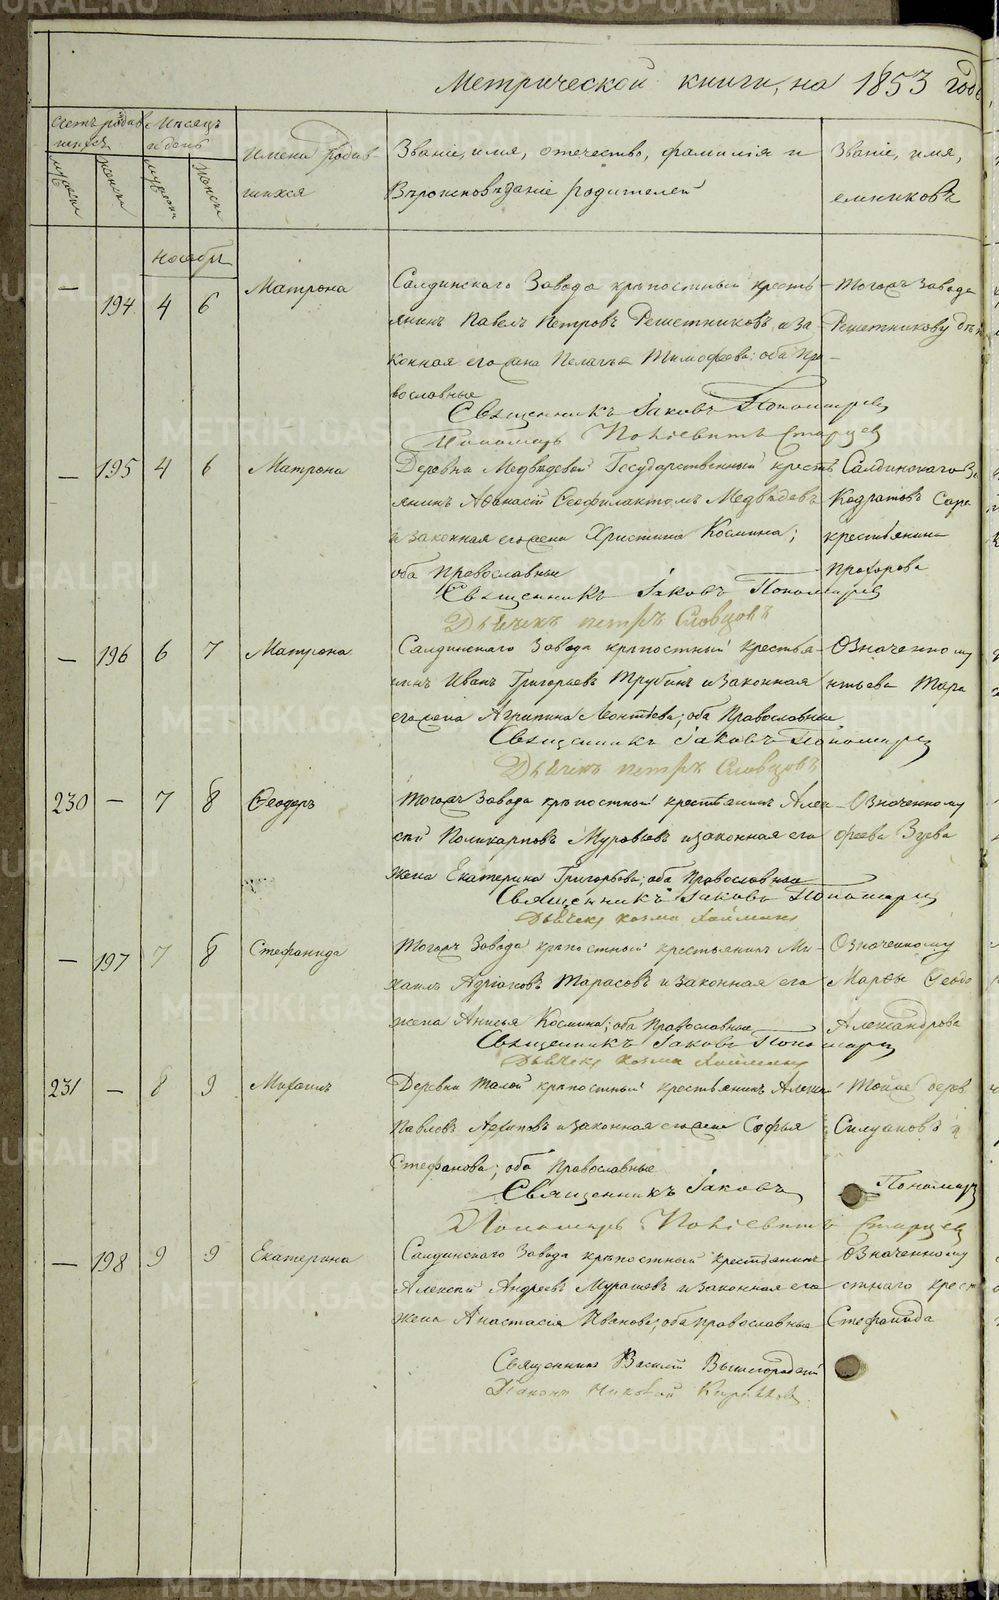 Метрической книги, на 1853 годъ
Счетъ родив-
шихся
Мѣсяцъ
и день
мужеска
женска
Имена родив-
шихся
Званіе, имя, отечество, фамилія и
Вѣроисповѣданіе родителей
Званіе, имя,
емниковъ
ноябрь
— 194 4 6 Матрона
Салдинскаго Завода крѣпостный кресть-
янинъ Павелъ Петровъ Решетниковъ и за-
конная его жена Пелагѣя Тимофеева; оба пра-
вославные
Священникъ Іаковъ Пономаревъ
Пономарь Старцев
Тогожъ Завода
Решетникову
— 195 4 6 Матрона
Деревни Медвѣдевой Государственный кресть
янинъ Афанасій Ѳеофилактовъ Медвѣдевъ
и законная его жена Христина Космина;
оба Православные
Священникъ Іаковъ Пономарев
Дьячекъ петръ Словцовъ
Салдинскаго За
Кодратовъ
крестьянина
Прохорова
— 196 6 7 Матрона
Салдинскаго Завода крѣпостный крестья-
нинъ Иванъ Григорьевъ Трубинъ и законная
его жена Агрипина Леонтьева; оба Православные
Священникъ Іаковъ Пономарев
Дьячекъ петръ Словцовъ
Означенному
нтьева
230 — 7 8 Ѳеодоръ
Тогожъ Завода крѣпостный крестьянинъ Алек-
сѣй Поликарповъ Муравьевъ и законная его
жена Екатерина Григорьева; оба Православные
Священникъ Іаковъ Пономарев
Дьячекъ козма
Означенному
ореева Зуева
— 197 7 8 Стефанида
Тогожъ Завода крѣпостный крестьянинъ Ми-
хаилъ Адріановъ Тарасовъ и законная его
жена Анисья Космина; оба Православные
Священникъ Іаковъ Пономарев
Дьячекъ козма
Означенному
Марѳы Ѳеодо
Александрова
231 — 8 9 Михаилъ
Деревни Талой крѣпостный крестьянинъ
Павловъ Архиповъ и законная его жена Софья
Стефанова; оба Православные
Священникъ Іаковъ Пономарев
Пономарь Старцев
Тойже дерев
Силуановъ и
— 198 9 9 Екатерина
Салдинскаго Завода крѣпостный крестьянинъ
Алексѣй Андреевъ Мурашевъ и законная его
жена Анастасія Иванова; оба православные
Священникъ Василій
Діаконъ Николай
Означенному
стнаго крест
Стефанида
METRIKI.GASO-URAL.RU